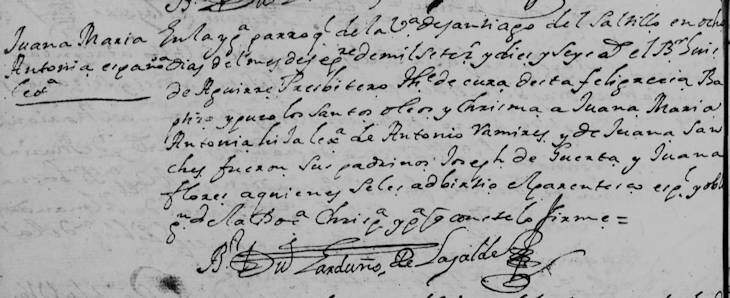 Juana Maria
Antonia españa
lexᵃ
En la ygᵃ parroqˡ de la Vᵃ de santiago del Saltillo en ocho
dias del mes de sepᵉ de mil setesˢ y dies y seys aˢ el Bʳ Luis
de Aguirre Presbitero thᵉ de cura desta feligrecia Ba
ptiso y puso los santos oleos y Chrisma a Juana Maria
Antonia hija lexᵃ de Antonio Ramires y de Juana San
ches fueron sus padrinos Joseph de Guerta y Juana
flores a quienes seles adbirtio el parentesco espˡ y obli
gⁿ de la Docᵃ Chrisᵃ y pᵃ q conste lo firme =
Bʳ